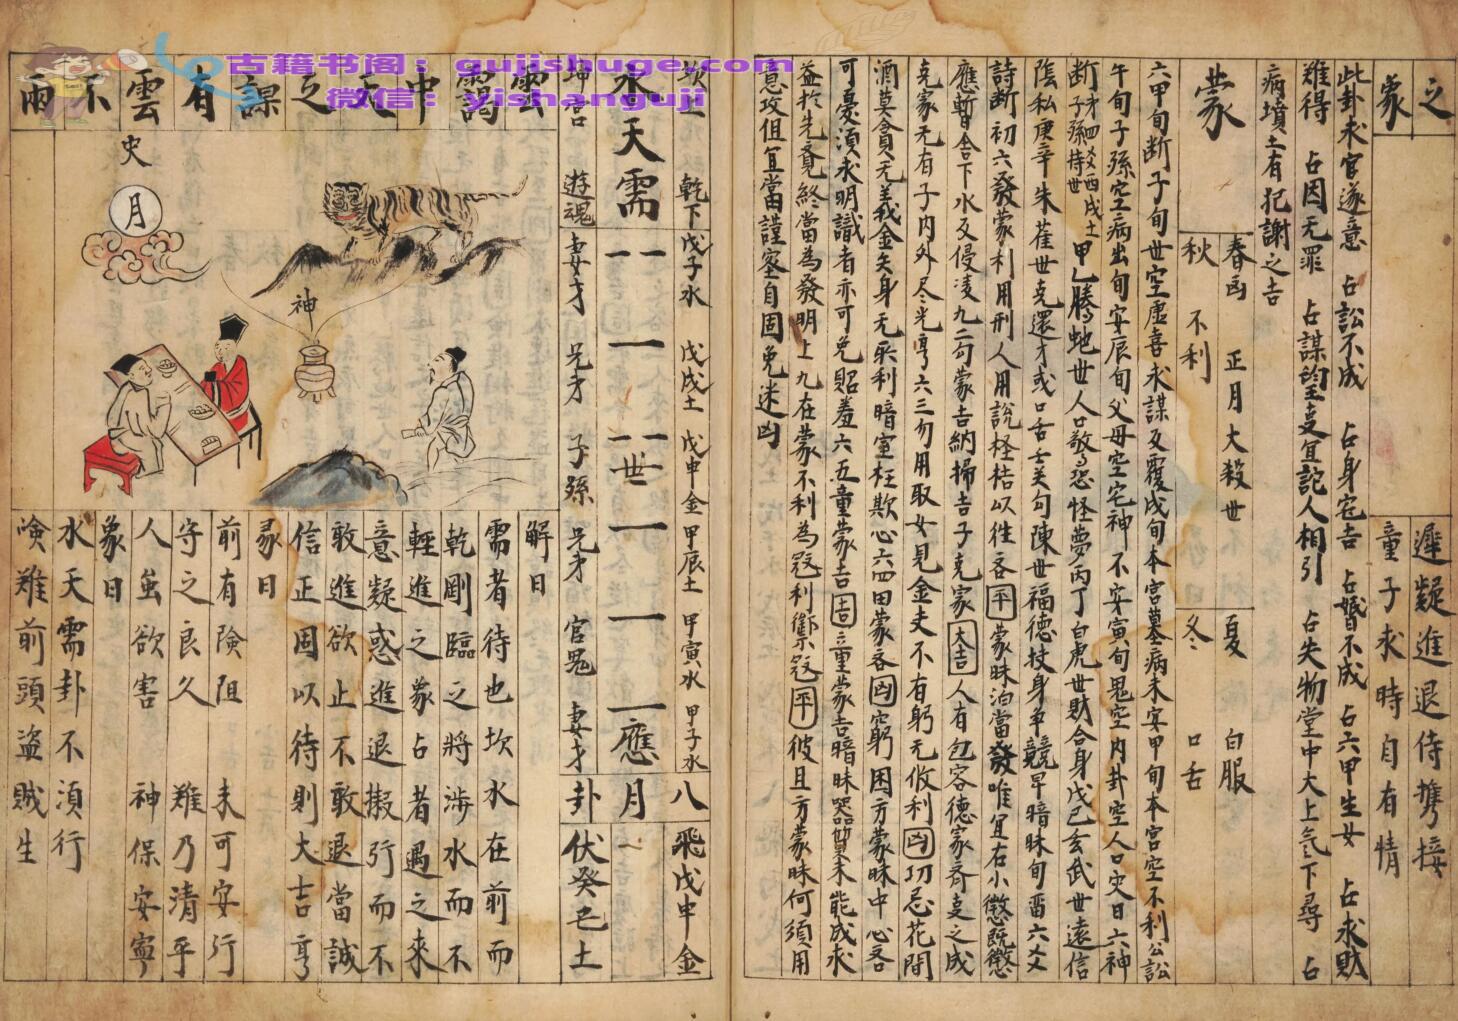 之
象
遲疑進退待携接
童子求時自有情
此卦求官遂意 占訟不成 占身宅吉 占婚不成 占六甲生女 占求財
难得 占囚无罪 占謀望更宜託人相引 占失物堂中大上気下尋 占
病墳土有犯謝之吉
蒙
春凶 正月大殺世
夏 白服
秋 不利
冬 口舌
六甲旬断子旬世空虚喜求謀反覆戌旬本宮墓病未安甲旬本宮空不利公訟
午旬子孫空病出旬安辰旬父母空宅神不安寅旬鬼空内卦空人口災日六神
断 甲乙騰虵世人口驚恐怪夢丙丁白虎世財合身戊己玄武世遠信
陰私庚辛朱雀世克還才或口舌壬关勾陳世福德技身争競早暗昧旬酉六爻
詩断初六發蒙利用刑人用說桎梏以往吝平蒙昧泊當發唯宜右小懲既懲
應暫舍下水反侵凌九二勾蒙吉納掃吉子克家大吉人有包容德家齊更之成
克家无有子内外尽光亨六三勿用取女見金夫不有躬无攸利凶切忌花間
酒莫貪无義金矢身无所利暗室枉欺心六四田蒙吝凶窮困方蒙昧中心吝
可憂須求明識者亦可免貽羞六五童蒙吉吉童蒙吉暗昧器業未能成求
益於先覺終當為發明上九在蒙不利為寇利禦寇平彼且方蒙昧何須用
意攻但宜當謹密自固免迷凶
坎上 乾下
戊子水 戊戌土 戊申金 甲辰土 甲寅水 甲子水
水天需
世
應
坤宮 遊魂
妻才 兄才 子孫 兄才 官鬼 妻才
八
月
卦
飛戊申金
伏癸巳土
雲靄中天之課有雲不雨
史
月
神
解曰
需者待也坎水在前而
乾剛臨之將涉水而不
輕進之象占者遇之來
意疑惑進退撥疔而不
敢進欲止不敢退當誠
信正固以待則大吉亨
彖曰
前有險阻 未可安行
守之良久 难乃清乎
人虽欲害 神保安寧
象曰
水天需卦不湏行
嶮難前頭盜贼生
古籍书阁：gujishuge.com
微信：yishanguji